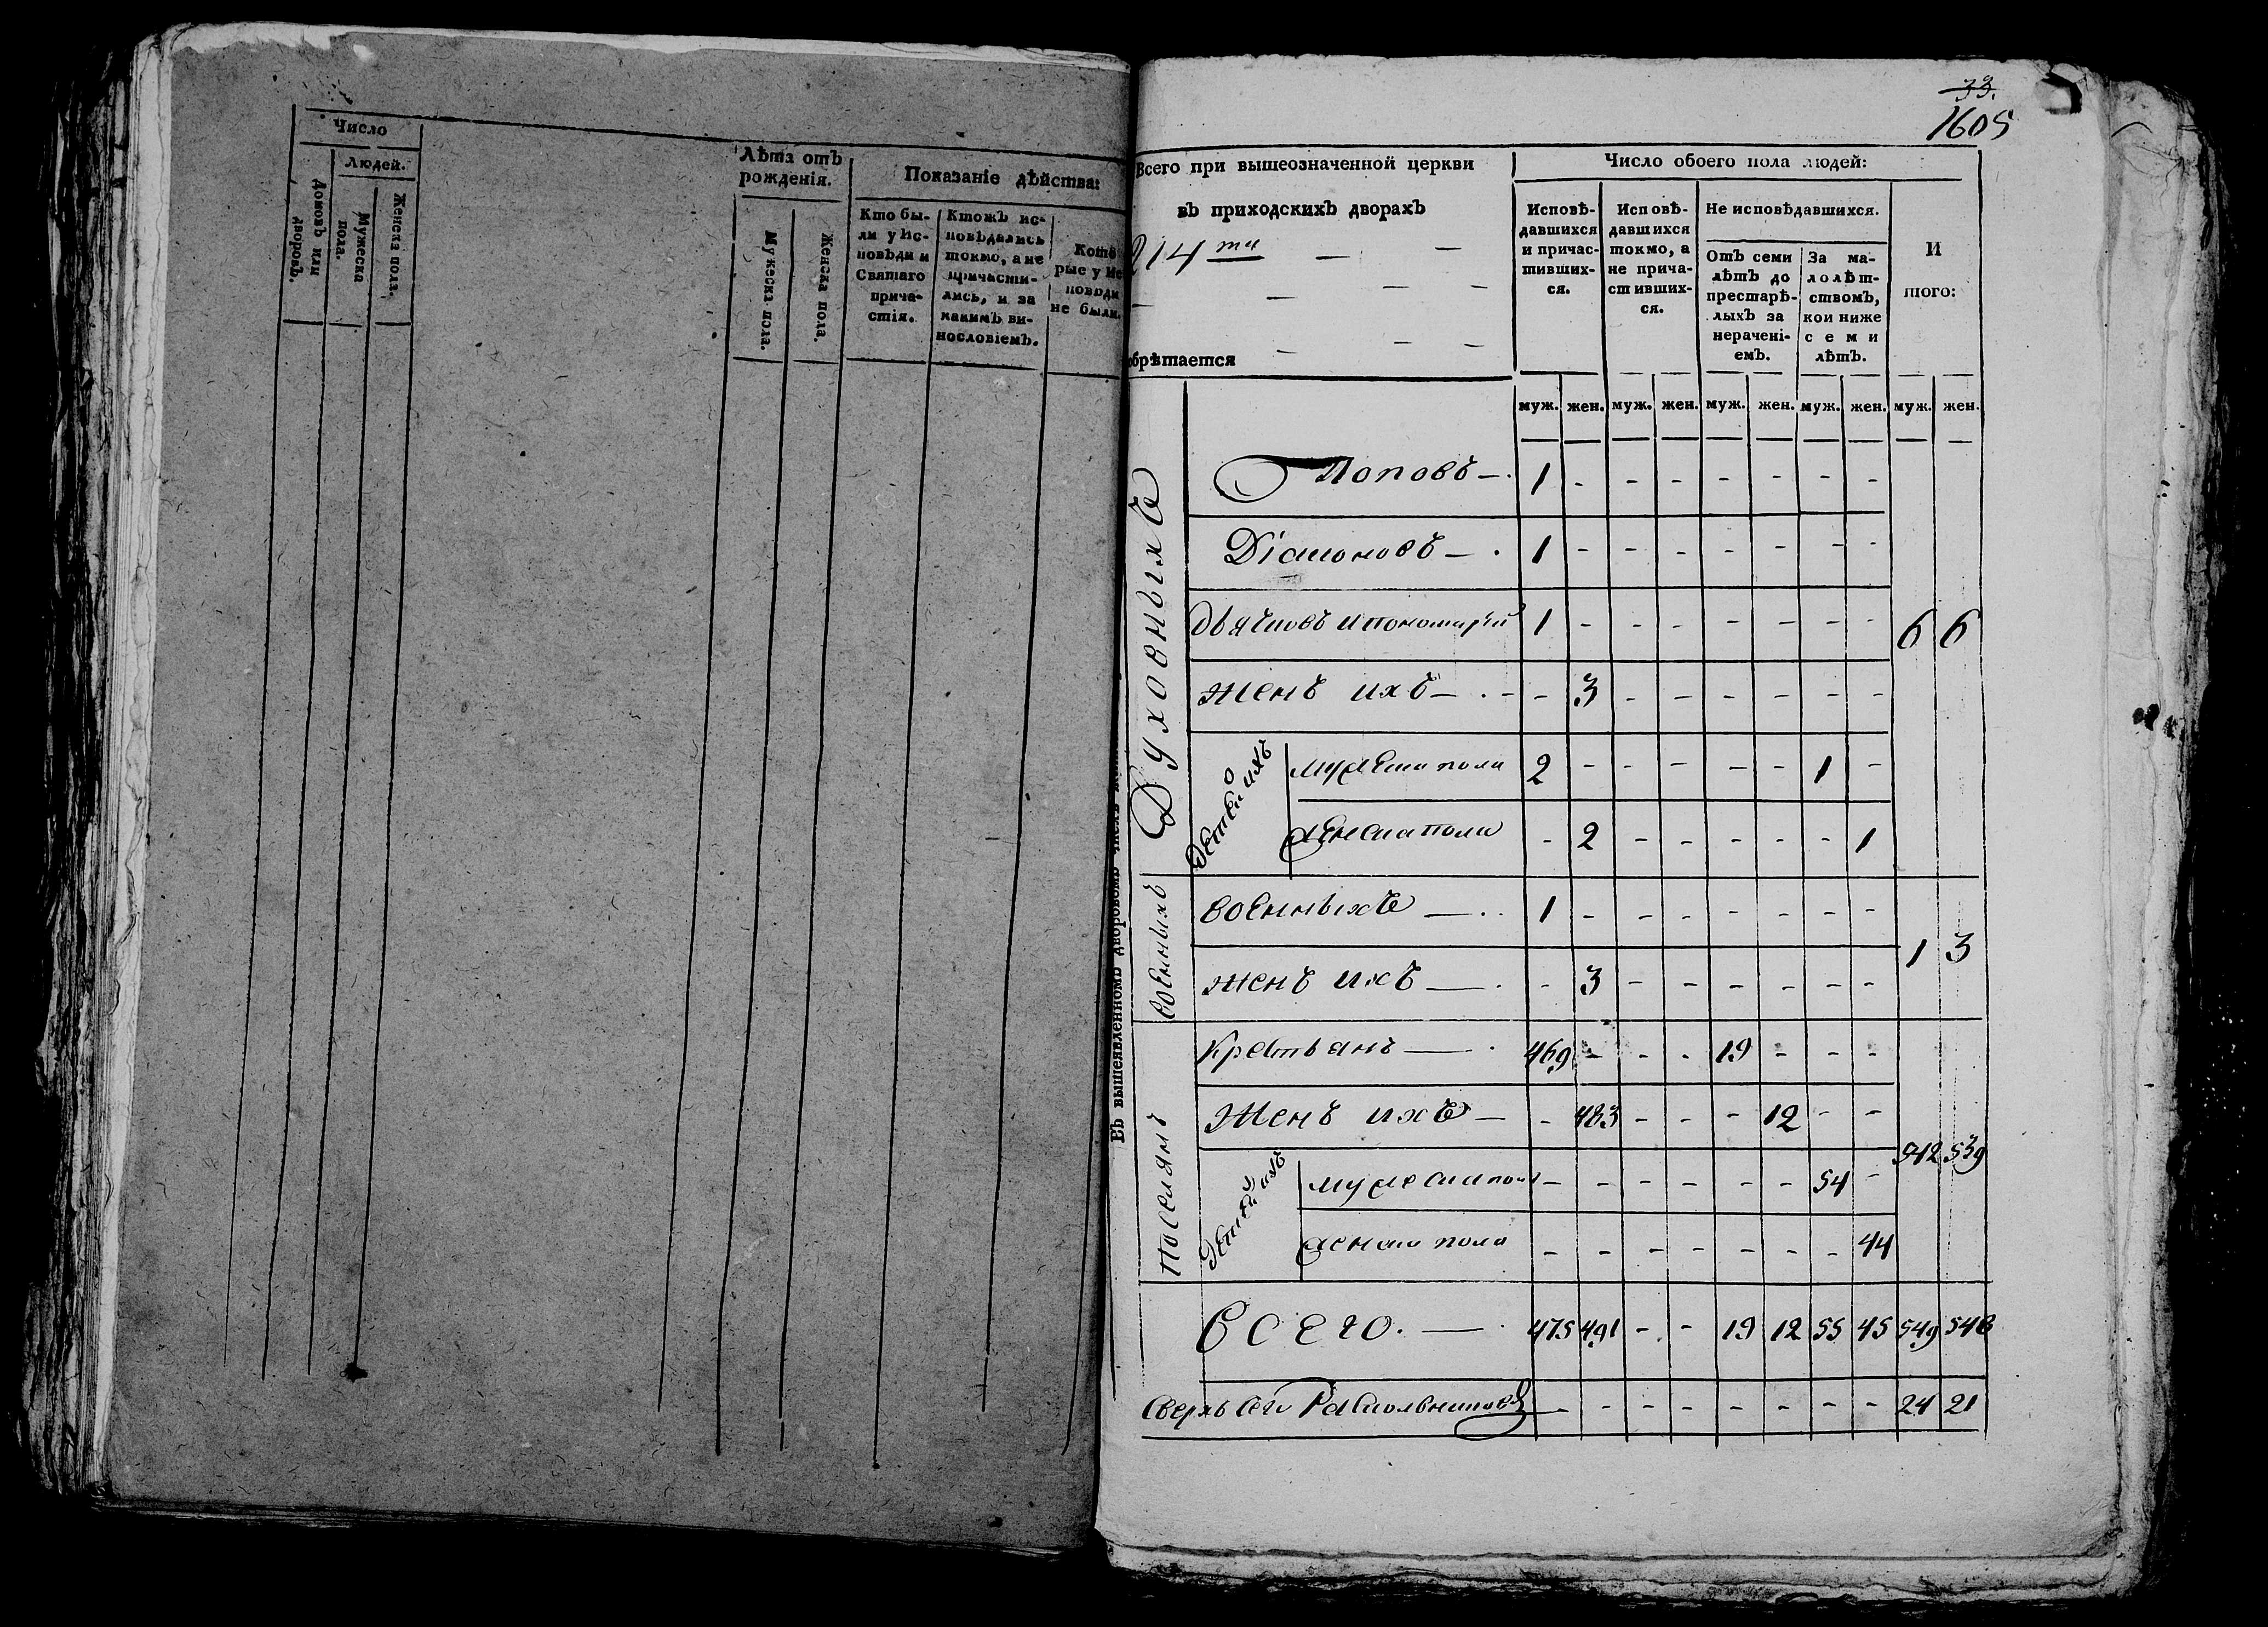 Число
Людей.
Домовъ или дворовъ.
Мужеска пола.
Женска пола.
Лѣта отъ
рожденія.
Мужеска пола.
Женска пола.
Показаніе дѣйства:
Кто бы-
ли у Ис-
повѣди и
Святаго
прича-
стія.
Ктожъ ис-
повѣдались
токмо, а не
причасти-
лись, и за
какимъ ви-
нословіемъ.
Кото
рые у Ис
повѣди
не были.
33.
1605
Всего при вышеозначенной церкви
въ приходскихъ дворахъ
214 ти — —
— — — —
— — —
обрѣтается
Число обоего пола людей:
Исповѣ-
давшихся
и причас-
тивших-
ся.
Исповѣ-
давшихся
токмо, а
не прича-
стивших-
ся.
Не исповѣдавшихся.
Отъ семи
лѣтъ до
престарѣ-
лыхъ за
нерачені-
емъ.
За ма-
лолѣт-
ствомъ,
кои ниже
семи
лѣтъ.
И
того:
муж. жен. муж. жен. муж. жен. муж. жен. муж. жен.
Въ вышеявленномъ дворовомъ
Духовныхъ
Поповъ — 1 - - - - - - -
Діаконовъ — 1 - - - - - - -
дьячковъ и пономарей 1 - - - - - - - 6 6
женъ ихъ — - 3 - - - - - -
Детей ихъ
мужеска пола 2 - - - - - 1 -
женска пола - 2 - - - - - 1
Военныхъ
военныхъ — 1 - - - - - - - 1 3
женъ ихъ — - 3 - - - - - -
Поселянъ
Крестьянъ — 469 - - - 19 - - -
Женъ ихъ — - 483 - - - 12 - - 542 539
Детей ихъ
мужеска пола - - - - - - 54 -
женска пола - - - - - - - 44
Всего. — 475 491 - - 19 12 55 45 549 548
Сверхъ сего Раскольниковъ - - - - - - - - 24 21